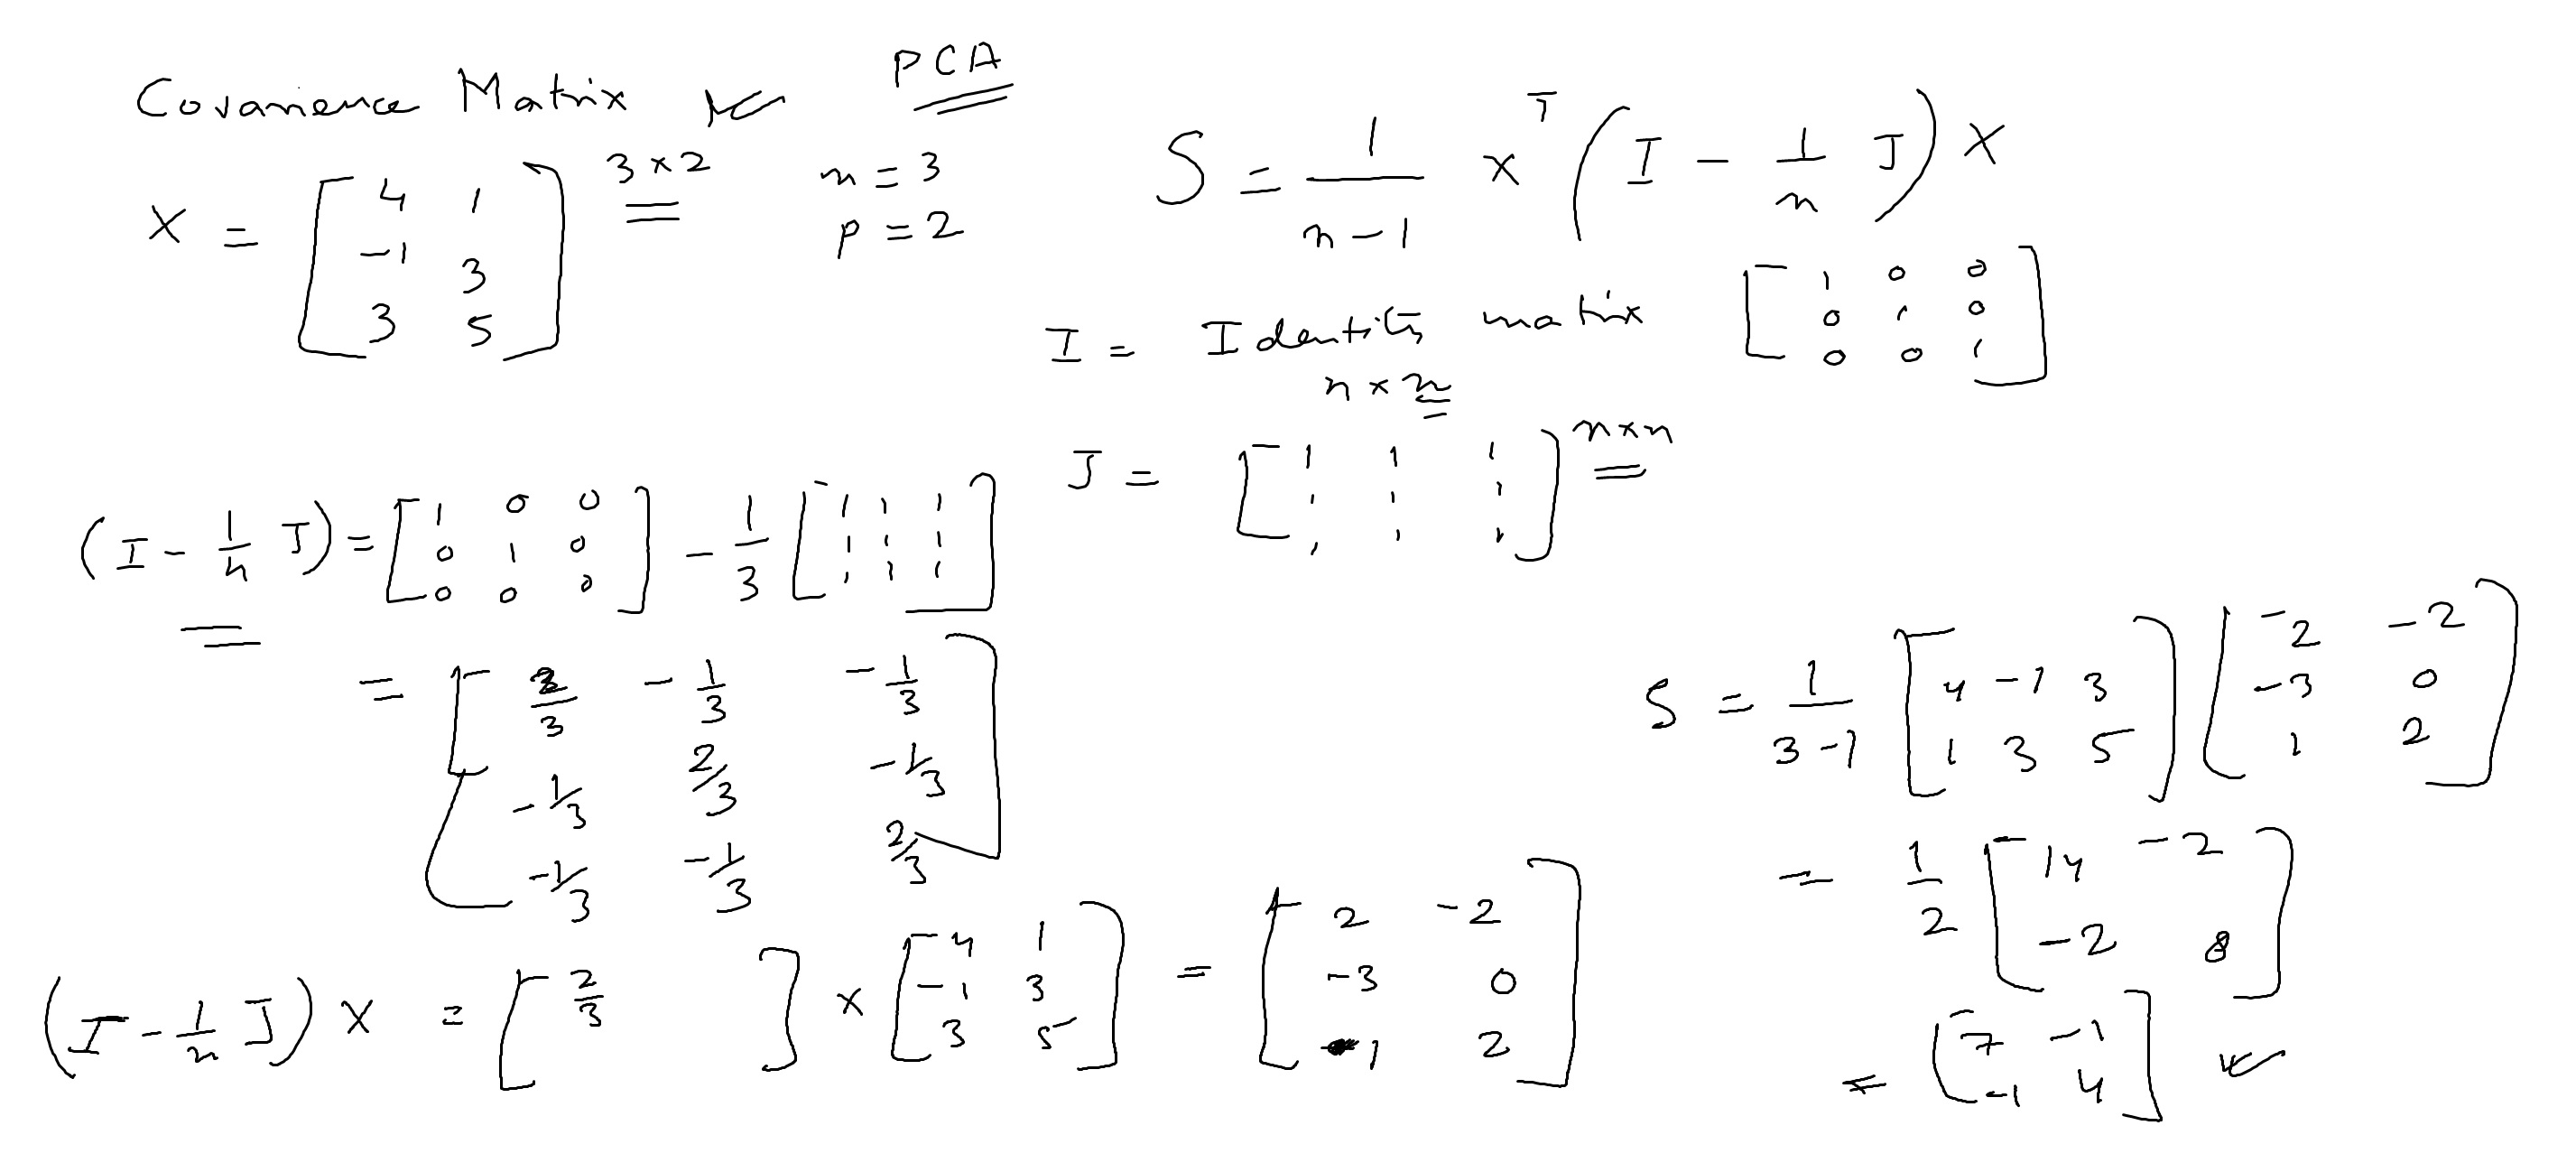 Covarience Matrix ✓ PCA
X = [ 4 1
-1 3
3 5 ] 3 × 2
n = 3
p = 2
S = 1/(n-1) X^T ( I - 1/n J ) X
I = Identity matrix n × n [ 1 0 0
0 1 0
0 0 1 ]
J = [ 1 1 1
1 1 1
1 1 1 ] n×n
( I - 1/n J ) = [ 1 0 0
0 1 0
0 0 0 ] - 1/3 [ 1 1 1
1 1 1
1 1 1 ]
= [ 2/3 -1/3 -1/3
-1/3 2/3 -1/3
-1/3 -1/3 2/3 ]
( I - 1/n J ) X = [ 2/3 ] × [ 4 1
-1 3
3 5 ] = [ 2 -2
-3 0
1 2 ]
S = 1/(3-1) [ 4 -1 3
1 3 5 ] [ 2 -2
-3 0
1 2 ]
= 1/2 [ 14 -2
-2 8 ]
= [ 7 -1
-1 4 ] ✓